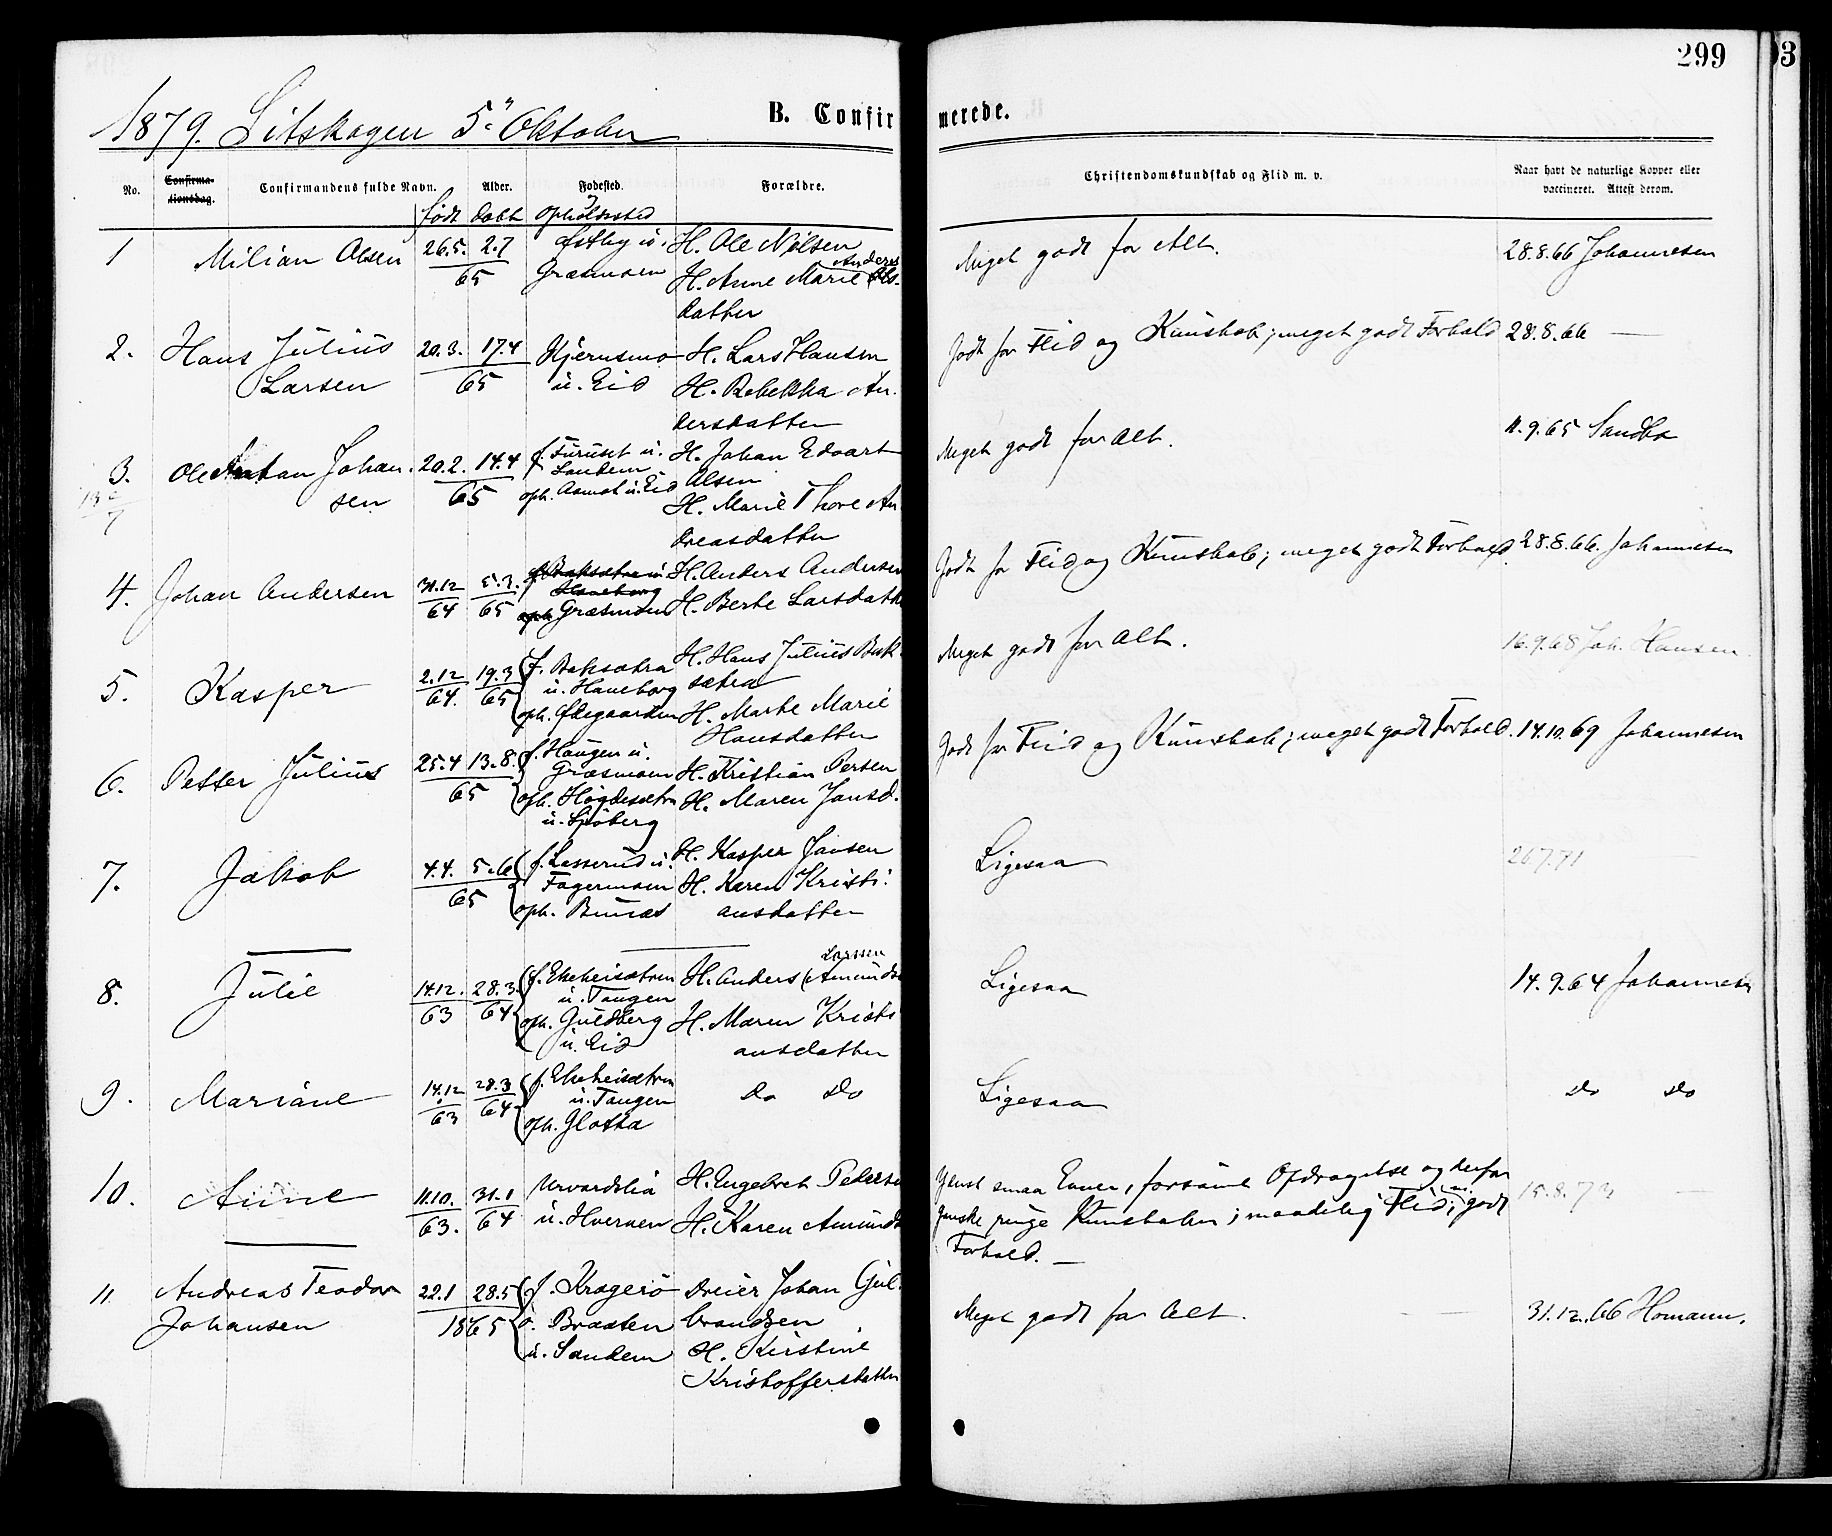 299
1879. Sitskogen 5te Oktober
B. Confir
merede.
No.
Confirmationsdag.
Confirmandens fulde Navn.
Alder.
Fødested.
Forældre.
Christendomskundskab og Flid m. v.
Naar havt de naturlige Kopper eller
vaccineret. Attest derom.
født døbt Opholdssted
1 Milian Olsen 26.5. 2.7 65
Østby u.
Græsmoen
H. Ole Nilsen
H. Anne Marie Anders
datter
Meget godt for Alt. 28.8.66 Johannesen
2. Hans Julius
Larsen
20.3. 17.4
65
Kjernsmo
u. Eid
H. Lars Hansen
H. Rebekka An
dersdatter
Godt for Flid og Kunskab; meget godt Forhold 28.8.66 —
3. Ole Anton Johan
sen
20.2. 14.4
65
f. Furuset u.
Sandem
oph. Asmot u. Eid
H. Johan Edvart
Olsen
H. Marie Thore An
dreasdatter
Meget godt for Alt. 11.9.65 Sandbo
4. Johan Andersen
31.12 5.3.
64 65
f. Baksætra u
Haneborg
oph. Græsmoen
H. Anders Andersen
H. Berte Larsdatt
Godt for Flid og Kunskab; meget godt Forhold. 28.8.66. Johannesen
5. Kasper
2.12 19.3
64. 65
f. Baksætra
u. Haneborg
oph. Ødegaarden
H. Hans Julius Bak
sætra
H. Marte Marie
Hansdatter
Meget godt for Alt. 16.9.68 Joh. Hansen
6. Petter Julius
25.4 13.8.
65
f. Haugen u.
Græsmoen
oph. Høgdesætra
u. Sjøberg
H. Kristian Persen
H. Maren Jansd.
Godt for Flid og Kunskab; meget godt Forhold. 14.10.69 Johannesen
7. Jakob
4.4. 5.6
65
f. Lasserud u.
Fagermoen
oph. Bunæs
H. Kasper Jansen
H. Karen Kristi
ansdatter
Ligesaa 26.7.71
8. Julie
14.12. 28.3.
63 64
f. Ekeheisætren
u. Tangen
oph. Guldberg
u. Eid
Larssen
H. Anders (Amunds
H. Maren Kristi
ansdatter
Ligesaa 14.9.64 Johannesen
9. Mariane
14.12 28.3
63 64
f. Ekeheisætren
u. Tangen
oph. Glotta
do do
Ligesaa do do
10. Anne
11.10. 31.1
63. 64
Urvardslia
u. Hvernen
H. Engebret Peders
H. Karen Amunds
smaa Evner, forsømt Opdragelse og derfor
ganske ringe Kunskaber; maadelig Flid; godt
Forhold. —
15.8.73 —
11. Andreas Teodor
Johansen
22.1 28.5
1865
f. Kragerø
o. Braaten
u. Sandem
Dreier Johan Gul
brandsen
H. Kirstine
Kristoffersdatter
Meget godt for Alt. 31.12.66 Homann.